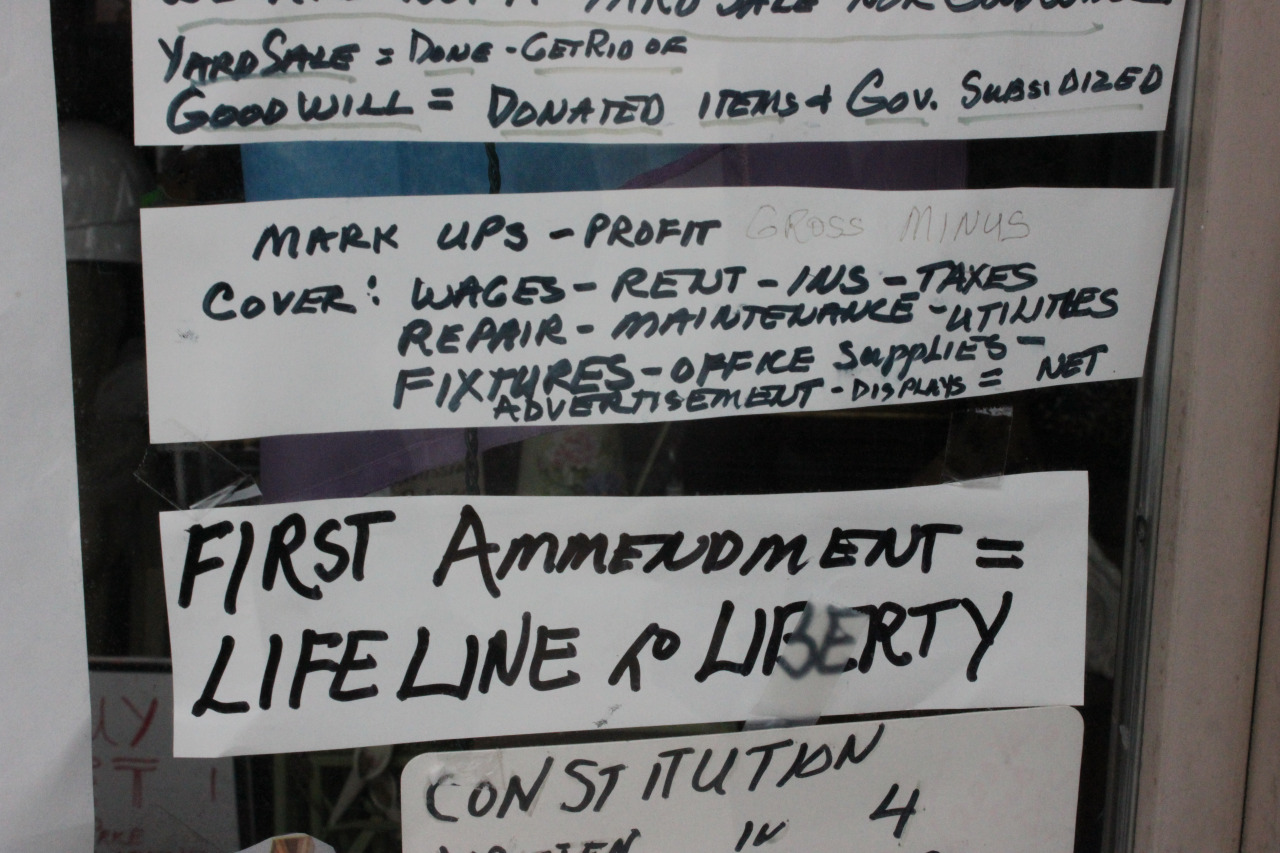 WE ARE NOT A YARD SALE NOR GOODWILL
YARD SALE = DONE - GET RID OF
GOODWILL = DONATED ITEMS & GOV. SUBSIDIZED
MARK UPS - PROFIT GROSS MINUS
COVER: WAGES - RENT - INS - TAXES
REPAIR - MAINTENANCE - UTILITIES
FIXTURES - OFFICE SUPPLIES -
ADVERTISEMENT - DISPLAYS = NET
FIRST AMMENDMENT =
LIFE LINE to LIBERTY
CONSTITUTION
IN 4